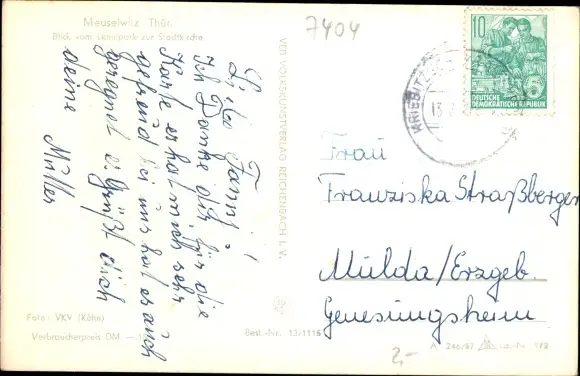 Meuselwitz, Thür.
Blick vom Leninpark zur Stadtkirche
7404
Liebe Fanni!
Ich Danke dir für die
Karte es hat mich sehr
gefreud bei uns hat es auch
geregnet es Grüßt dich
deine Mutter
VEB VOLKSKUNSTVERLAG REICHENBACH I. V.
10
DEUTSCHE
DEMOKRATISCHE REPUBLIK
KRIEBITZSCH
13.
Frau
Franziska Straßberger
Mulda/Erzgeb.
Genesungsheim
Foto: VKV (Kühn)
Verbraucherpreis DM
Best.-Nr. 13/1116
2,-
A 246/57